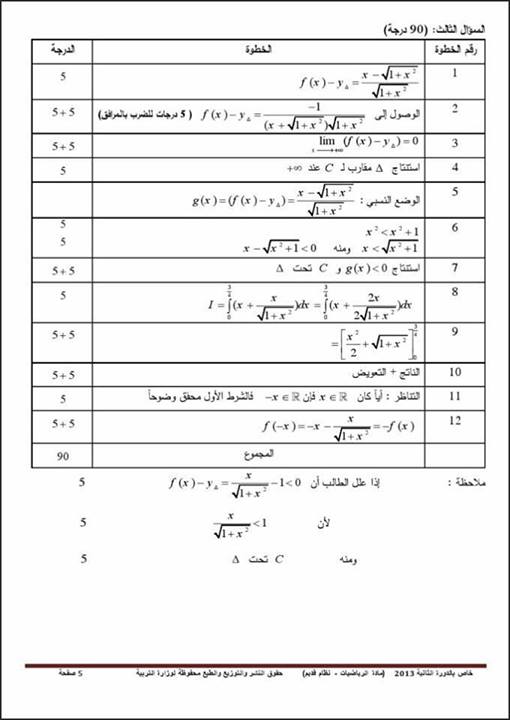 السؤال الثالث: (90 درجة)
رقم الخطوة الخطوة الدرجة
1 f(x) − y_Δ = (x − √(1+x²)) / √(1+x²) 5
2 الوصول إلى f(x) − y_Δ = −1 / ((x + √(1+x²))√(1+x²)) (5 درجات للضرب بالمرافق) 5+5
3 lim_{x→+∞} (f(x) − y_Δ) = 0 5+5
4 استنتاج Δ مقارب لـ C عند +∞ 5
5 الوضع النسبي : g(x) = (f(x) − y_Δ) = (x − √(1+x²)) / √(1+x²)
6 x² < x² + 1 5
x < √(x²+1) ومنه x − √(x²+1) < 0 5
7 استنتاج g(x) < 0 و C تحت Δ 5+5
8 I = ∫₀^{3/4} (x + x/√(1+x²))dx = ∫₀^{3/4} (x + 2x/(2√(1+x²)))dx 5
9 = [x²/2 + √(1+x²)]₀^{3/4} 5+5
10 الناتج + التعويض 5+5
11 التناظر : أياً كان x ∈ ℝ فإن −x ∈ ℝ فالشرط الأول محقق وضوحاً 5
12 f(−x) = −x − x/√(1+x²) = −f(x) 5+5
المجموع 90
ملاحظة : إذا علل الطالب أن f(x) − y_Δ = x/√(1+x²) − 1 < 0 5
لأن x/√(1+x²) < 1 5
ومنه C تحت Δ 5
خاص بالدورة الثانية 2013 (مادة الرياضيات - نظام قديم) حقوق النشر والتوزيع والطبع محفوظة لوزارة التربية 5 صفحة